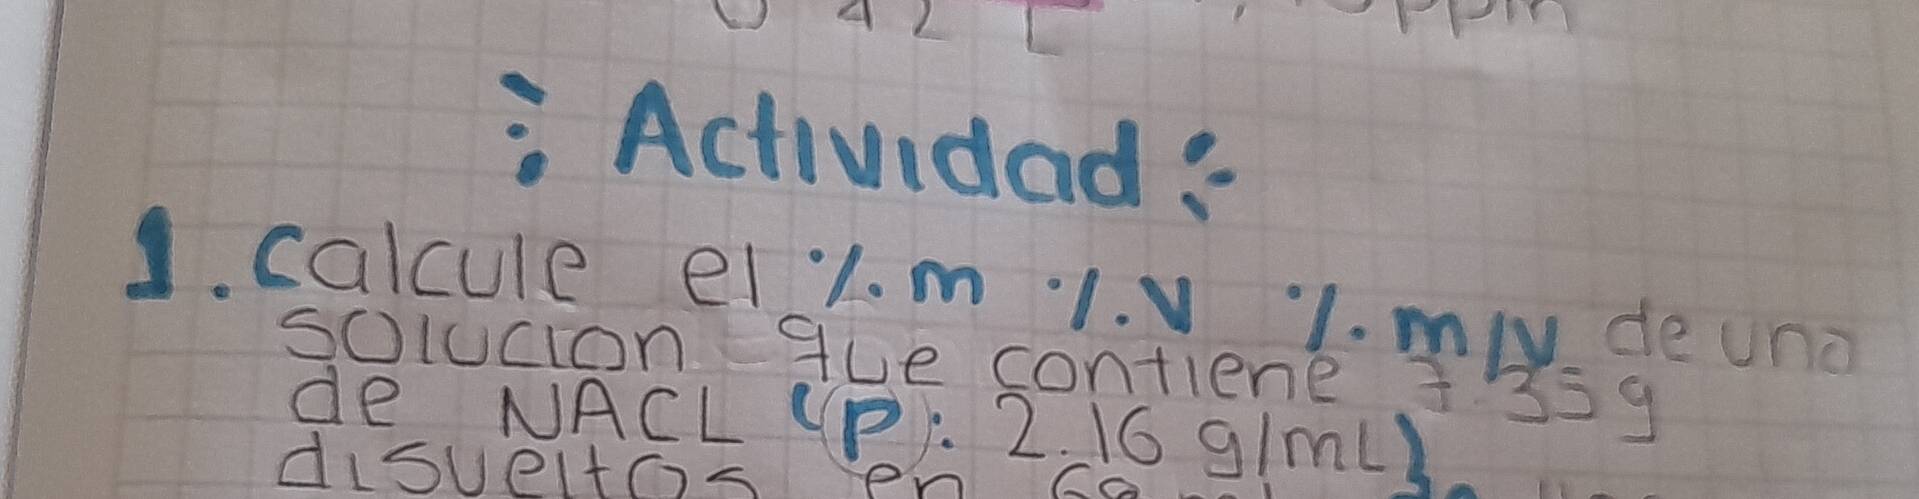 Actividad
1. Calcule el %.m %.V %.m/V de una
solucion que contiene 7.35g
de NACL (P: 2.16 g/mL)
disueltos en